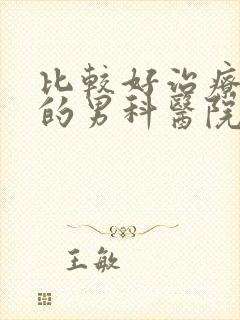 比較好治療
的男科醫院
王敏